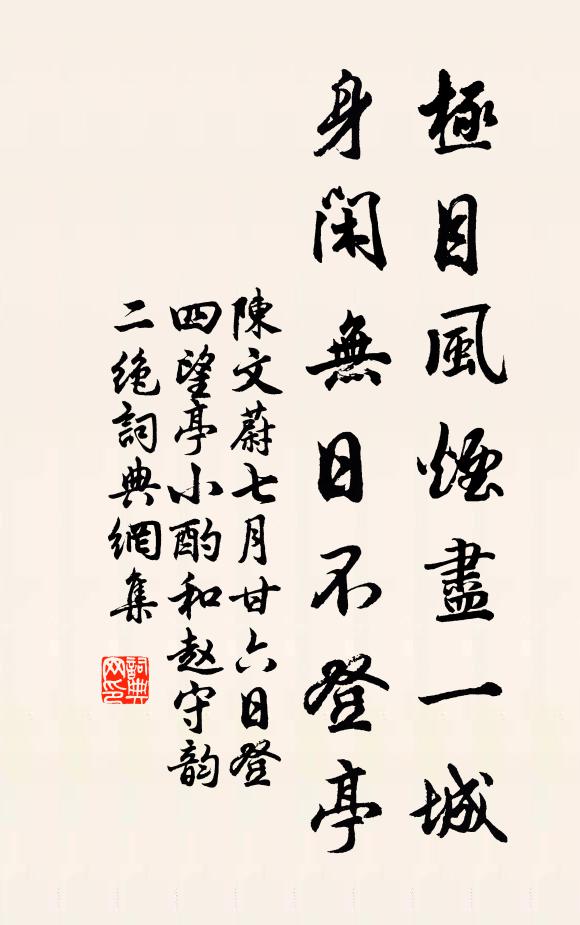 極目風煙盡一城
身閑無日不登亭
陳文蔚七月廿六日登
四望亭小酌和赵守韵
二绝詞典網集
詞典网印